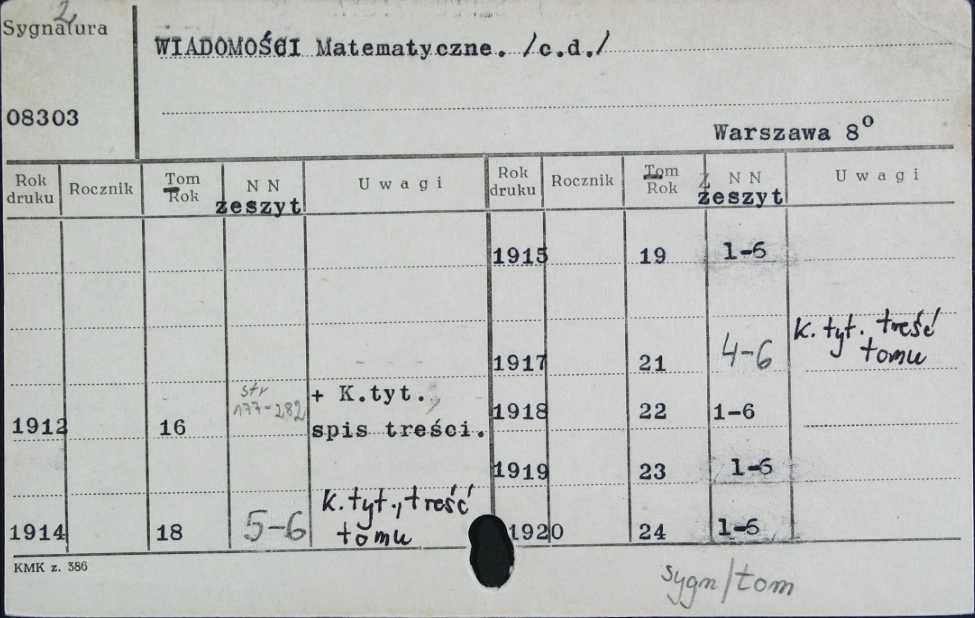 2
Sygnatura
WIADOMOŚCI Matematyczne. /c.d./
08303
Warszawa 8°
Rok druku Rocznik Tom Rok N N zeszyt Uwagi Rok druku Rocznik Tom Rok Z N N zeszyt Uwagi
1915 19 1-6
1917 21 4-6 K. tyt. treść tomu
1912 16 str 177-282 + K.tyt., spis treści.
1918 22 1-6
1919 23 1-6
1914 18 5-6 K. tyt., treść tomu
1920 24 1-6
KMK z. 386
sygn/tom